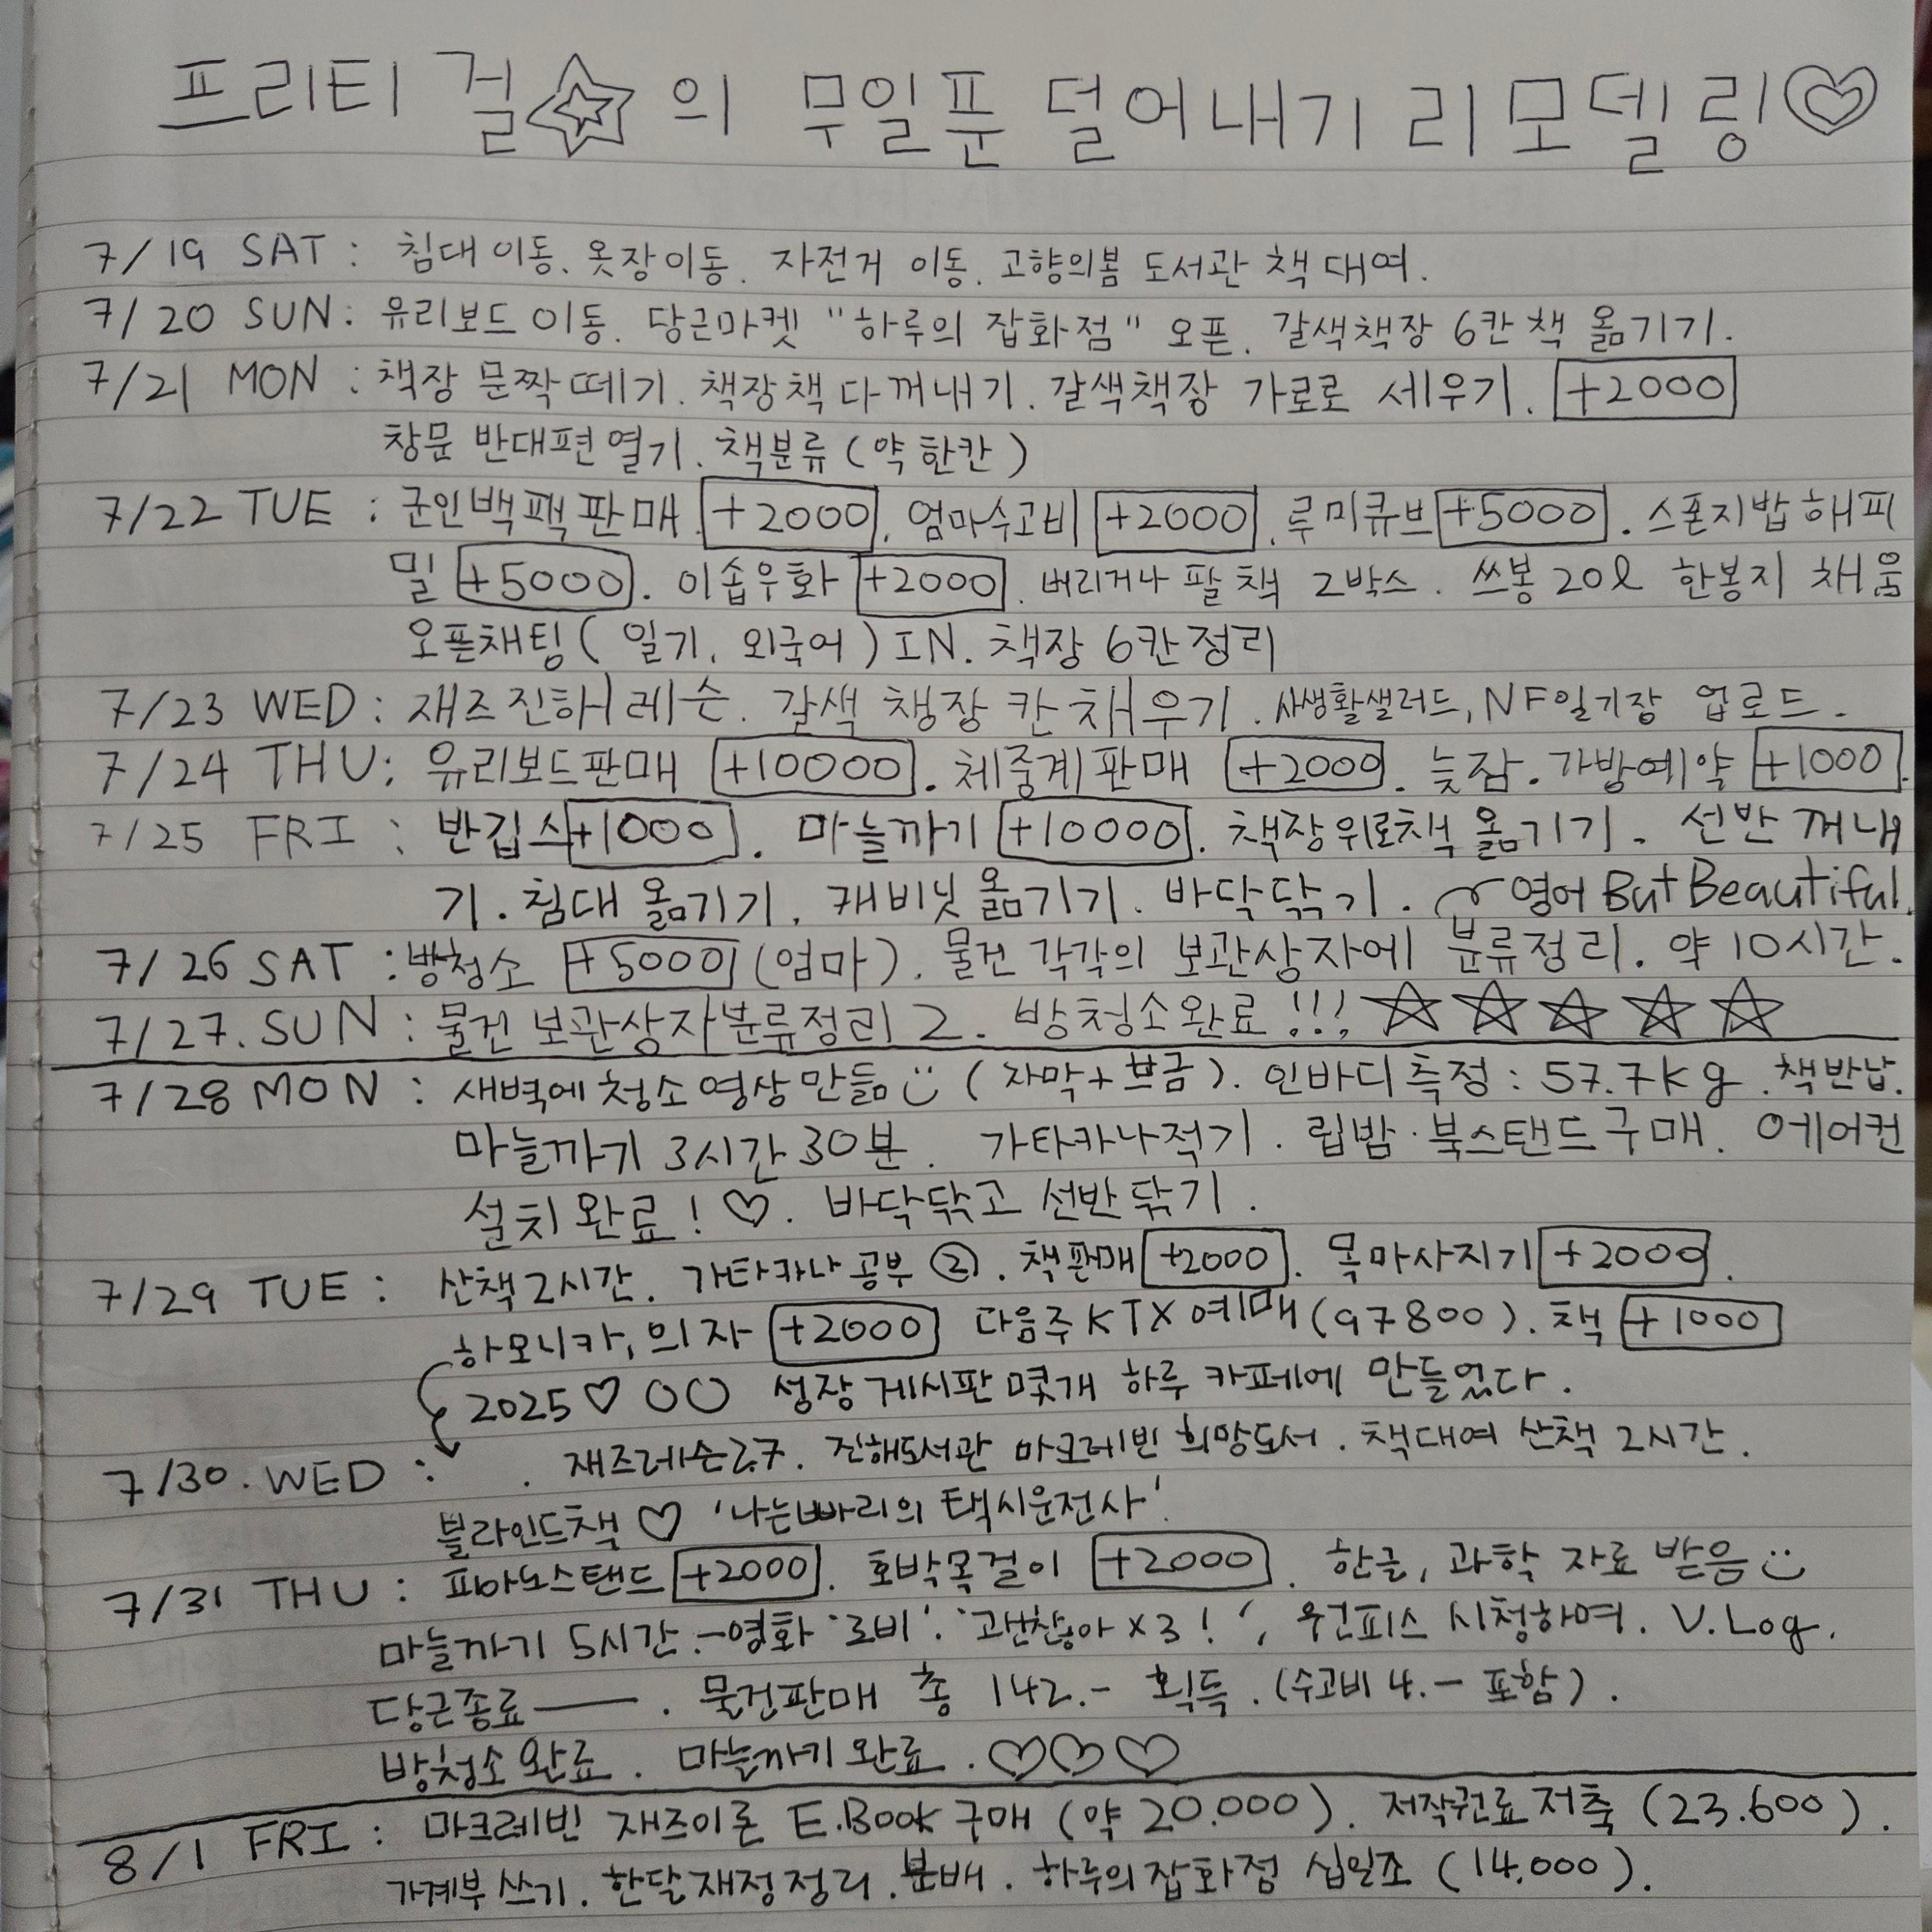 프리티걸☆의 무일푼 덜어내기 리모델링♡
7/19 SAT : 침대이동. 옷장이동. 자전거 이동. 고향의봄 도서관 책 대여.
7/20 SUN : 유리보드 이동. 당근마켓 "하루의 잡화점" 오픈. 갈색책장 6칸 책 옮기기.
7/21 MON : 책장 문짝떼기. 책장책 다꺼내기. 갈색책장 가로로 세우기. +2000
창문 반대편 열기. 책분류 (약 한칸)
7/22 TUE : 군인백팩판매 +2000. 엄마수고비 +2000. 루미큐브 +5000. 스폰지밥해피
밀 +5000. 이솝우화 +2000. 버리거나 팔 책 2박스. 쓰봉 20ℓ 한봉지 채움
오픈채팅(일기, 외국어)IN. 책장 6칸정리
7/23 WED : 재즈진해레슨. 갈색 책장 칸채우기. 사생활샐러드, NF일기장 업로드.
7/24 THU : 유리보드판매 +10000. 체중계판매 +2000. 늦잠. 가방예약 +1000.
7/25 FRI : 반깁스 +1000. 마늘까기 +10000. 책장위로책 옮기기. 선반꺼내
기. 침대 옮기기. 캐비닛 옮기기. 바닥닦기. 영어 But Beautiful.
7/26 SAT : 방청소 +5000 (엄마). 물건 각각의 보관상자에 분류정리. 약 10시간.
7/27. SUN : 물건 보관상자분류정리 2. 방청소완료!!! ☆☆☆☆☆
7/28 MON : 새벽에 청소영상만듦 (자막+브금). 인바디측정 : 57.7kg. 책반납.
마늘까기 3시간 30분. 가타카나적기. 립밤·북스탠드구매. 에어컨
설치완료! ♡. 바닥닦고 선반닦기.
7/29 TUE : 산책2시간. 가타카나공부②. 책판매 +2000. 목마사지기 +2000.
하모니카, 의자 +2000 다음주KTX예매(97800). 책 +1000
2025♡○○ 성장게시판 몇개 하루 카페에 만들었다.
7/30. WED : . 재즈레슨27. 진해도서관 마크레빈 희망도서. 책대여 산책 2시간.
블라인드책♡ '나는빠리의 택시운전사'.
7/31 THU : 피아노스탠드 +2000. 호박목걸이 +2000. 한글, 과학 자료 받음
마늘까기 5시간.-영화 '로비'. '괜찮아×3!', 원피스 시청하며. V.Log.
당근종료——. 물건판매 총 142.- 획득. (수고비 4.- 포함).
방청소완료. 마늘까기완료. ♡♡♡
8/1 FRI : 마크레빈 재즈이론 E.Book구매 (약 20.000). 저작권료저축 (23.600).
가계부 쓰기. 한달재정정리. 분배. 하루의잡화점 십일조 (14,000).